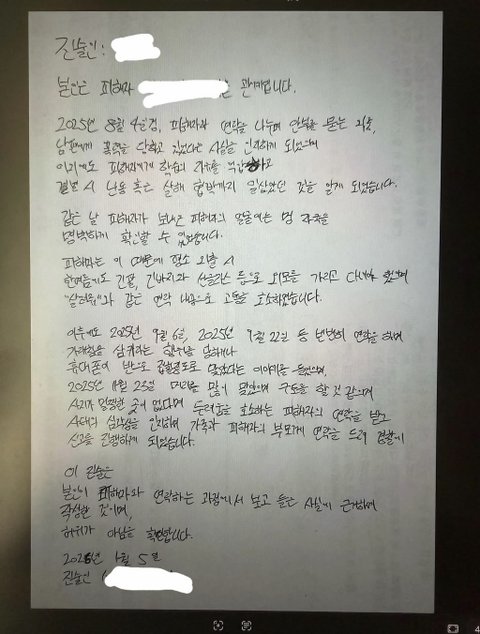 진술인:
본인은 피해자 관계입니다.
2025년 8월 4일경, 피해자와 연락을 나누며 안부를 묻는 기회,
남편에게 폭력을 당하고 있었다는 사실을 인지하게 되었으며
이외에도 피해자에게 학습의 자유를 억압하고
결별 시 난동 혹은 살해 협박까지 일삼았던 것을 알게 되었습니다.
같은 날 피해자가 보내준 피해자의 얼굴에는 멍 자국을
명백하게 확인할 수 있었습니다.
피해자는 이 때문에 평소 외출 시
한여름에도 긴팔, 긴바지와 선글라스 등으로 외모를 가리고 다녀야 했으며
"살려줘"와 같은 연락 내용으로 고통을 호소하였습니다.
이후에도 2025년 9월 6일, 2025년 9월 22일 등 빈번히 연락을 하며
가래침을 삼키라는 행위를 당하거나
휴대폰이 반으로 접힐정도로 맞았다는 이야기를 들었으며,
2025년 11월 23일 머리를 많이 맞았으며 구토를 할 것 같으며
사지가 멀쩡한 곳이 없다며 두려움을 호소하는 피해자의 연락을 받고
사태의 심각성을 인지하여 가족과 피해자의 부모께 연락을 드려 경찰에
신고를 진행하게 되었습니다.
이 진술은
본인이 피해자와 연락하는 과정에서 보고 들은 사실에 근거하여
작성한 것이며,
허위가 아님을 확인합니다.
2026년 1월 5일
진술인